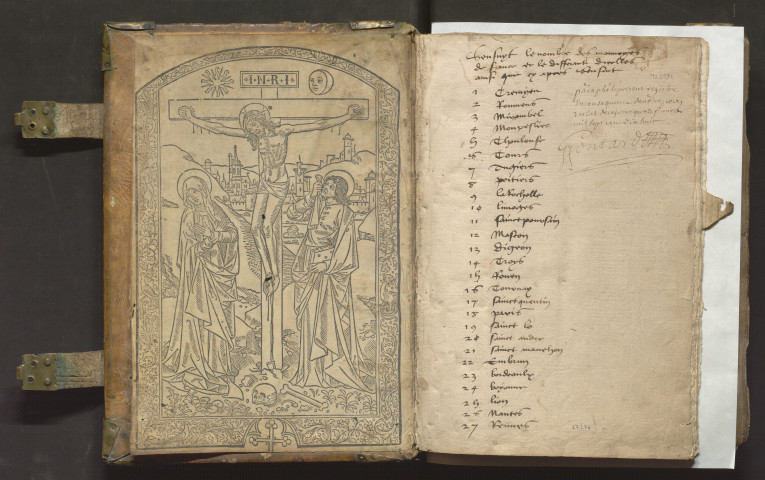 I·N·R·I
Sensuyt le nombre des monnoyes
de france et le different dicelles
ainsi que cy apres sensuit
1 Cremyeu
2 Rommans
3 Mirambel
4 Monpeslier
5 Tholouse
6 Tours
7 Angiers
8 poitiers
9 la Rochelle
10 limoges
11 sainct poursain
12 Mascon
13 Digeon
14 Troys
15 Rouen
16 Tournay
17 sainct quentin
18 paris
19 sainct lo
20 sainct andre
21 sainct
22 Embrun
23 bordeaulx
24 bayonne
25 lion
26 Nantes
27 Rennes
paraphé le present registre